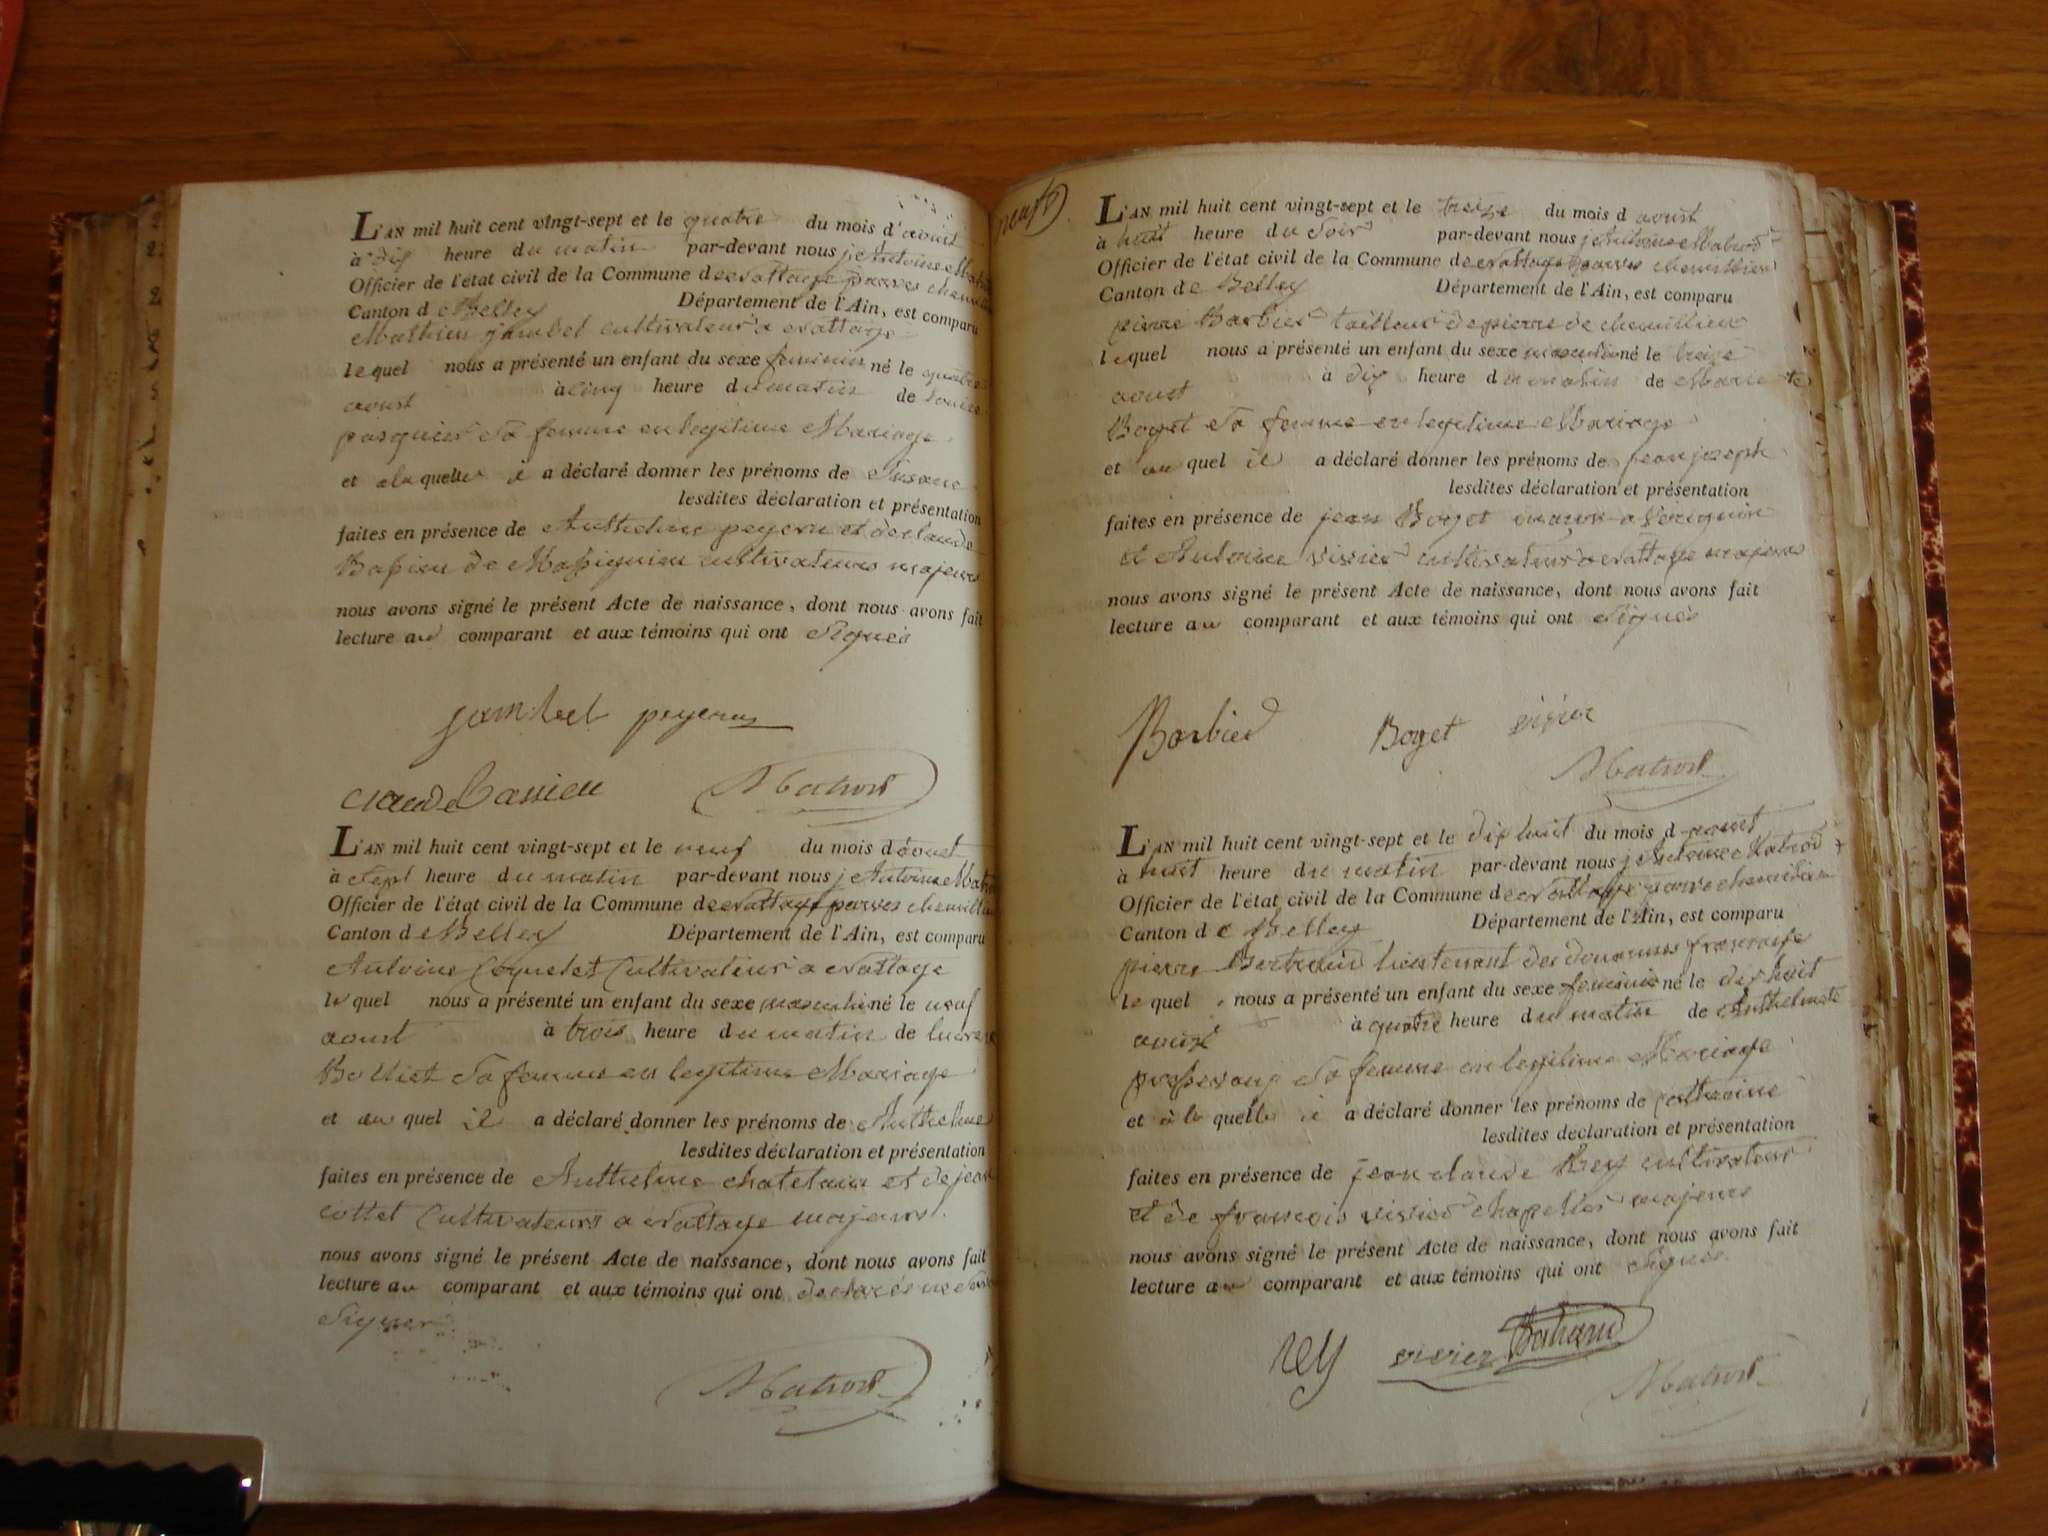 L'AN mil huit cent vingt-sept et le quatre du mois d'aoust
à dix heure du matin par-devant nous j Antoine
Officier de l'état civil de la Commune de nattage parves
Canton de Belley Département de l'Ain, est comparu
Mathieu jambet cultivateur a nattage
lequel nous a présenté un enfant du sexe feminin né le quatre
aoust à cinq heure du matin de
pasquier Sa femme en legitime Mariage
et a la quelle il a déclaré donner les prénoms de
lesdites déclaration et présentation
faites en présence de Anthelme peyeru et de claude
Bassieu de Massignieu cultivateurs majeurs
nous avons signé le présent Acte de naissance, dont nous avons fait
lecture au comparant et aux témoins qui ont Signés
peyerus
claude Bassieu
L'AN mil huit cent vingt-sept et le neuf du mois d'aoust
à sept heure du matin par-devant nous j Antoine
Officier de l'état civil de la Commune de nattage parves
Canton de Belley Département de l'Ain, est comparu
Antoine Coquelet Cultivateur a nattage
le quel nous a présenté un enfant du sexe masculin né le neuf
aoust à trois heure du matin de
Bolliet Sa femme en legitime Mariage
et au quel il a déclaré donner les prénoms de Anthelme
lesdites déclaration et présentation
faites en présence de Anthelme chatelain et de jean
cottet Cultivateurs a nattage majeurs
nous avons signé le présent Acte de naissance, dont nous avons fait
lecture au comparant et aux témoins qui ont declarés ne
Signer
neuf
L'AN mil huit cent vingt-sept et le treize du mois d aoust
à huit heure du Soir par-devant nous j Antoine
Officier de l'état civil de la Commune de nattage parves
Canton de Belley Département de l'Ain, est comparu
pierre Barbier tailleur de pierre de chemillieu
lequel nous a présenté un enfant du sexe masculin né le treize
aoust à dix heure du matin de Marie
Boget Sa femme en legitime Mariage
et au quel il a déclaré donner les prénoms de jean joseph
lesdites déclaration et présentation
faites en présence de jean Boget maçon a
et Antoine vivier cultivateur a nattage majeurs
nous avons signé le présent Acte de naissance, dont nous avons fait
lecture au comparant et aux témoins qui ont Signés
Barbier Boget vivier
L'AN mil huit cent vingt-sept et le dix huit du mois d aoust
à huit heure du matin par-devant nous j Antoine
Officier de l'état civil de la Commune de nattage parves chemillieu
Canton de Belley Département de l'Ain, est comparu
pierre Bertrand lieutenant des douannes
le quel nous a présenté un enfant du sexe feminin né le dix huit
aoust à quatre heure du matin de
Sa femme en legitime Mariage
et à la quelle il a déclaré donner les prénoms de
lesdites déclaration et présentation
faites en présence de jean claude Rey cultivateur
et de françois vivier chapelier majeurs
nous avons signé le présent Acte de naissance, dont nous avons fait
lecture au comparant et aux témoins qui ont Signés
rey vivier Bertrand